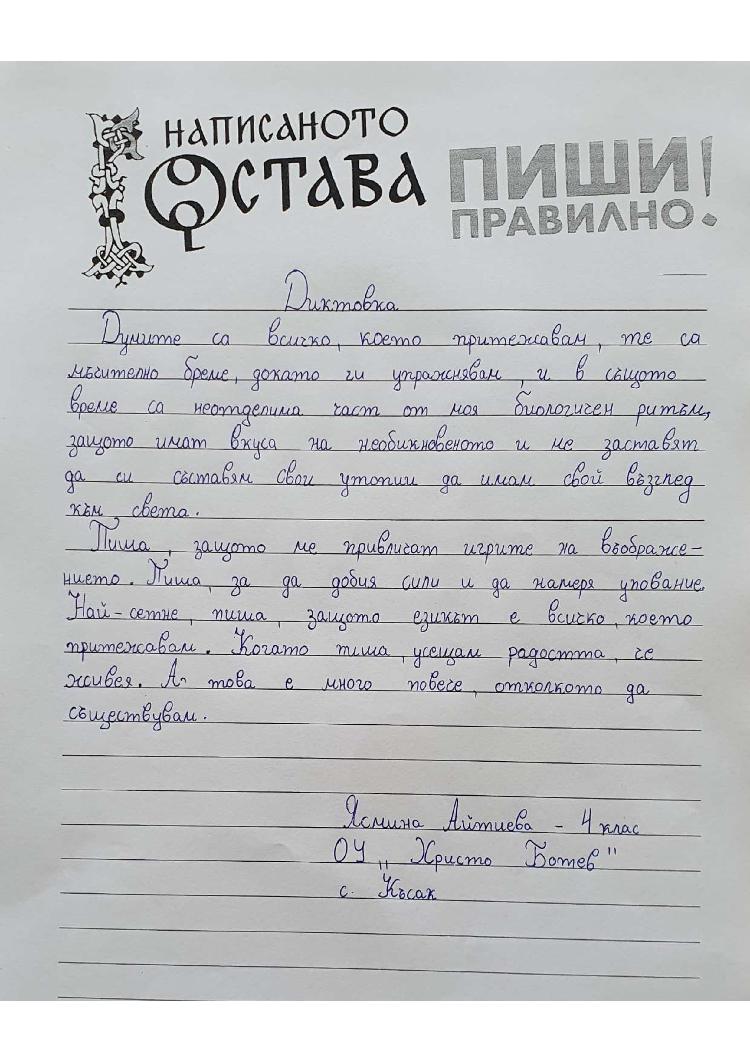 НАПИСАНОТО
ОСТАВА
ПИШИ!
ПРАВИЛНО
Диктовка
Думите са всичко, което притежавам, те са
мъчително бреме, докато ги упражнявам, и в същото
време са неотделима част от моя биологичен ритъм,
защото имат вкуса на необикновеното и ме заставят
да си съставям свои утопии да имам свой възглед
към света.
Пиша, защото ме привличат игрите на въображе-
нието. Пиша, за да добия сили и да намеря упование.
Най-сетне, пиша, защото езикът е всичко, което
притежавам. Когато пиша, усещам радостта, че
живея. А това е много повече, отколкото да
съществувам.
Ясмина Айтиева - 4 клас
ОУ „Христо Ботев"
с. Късак